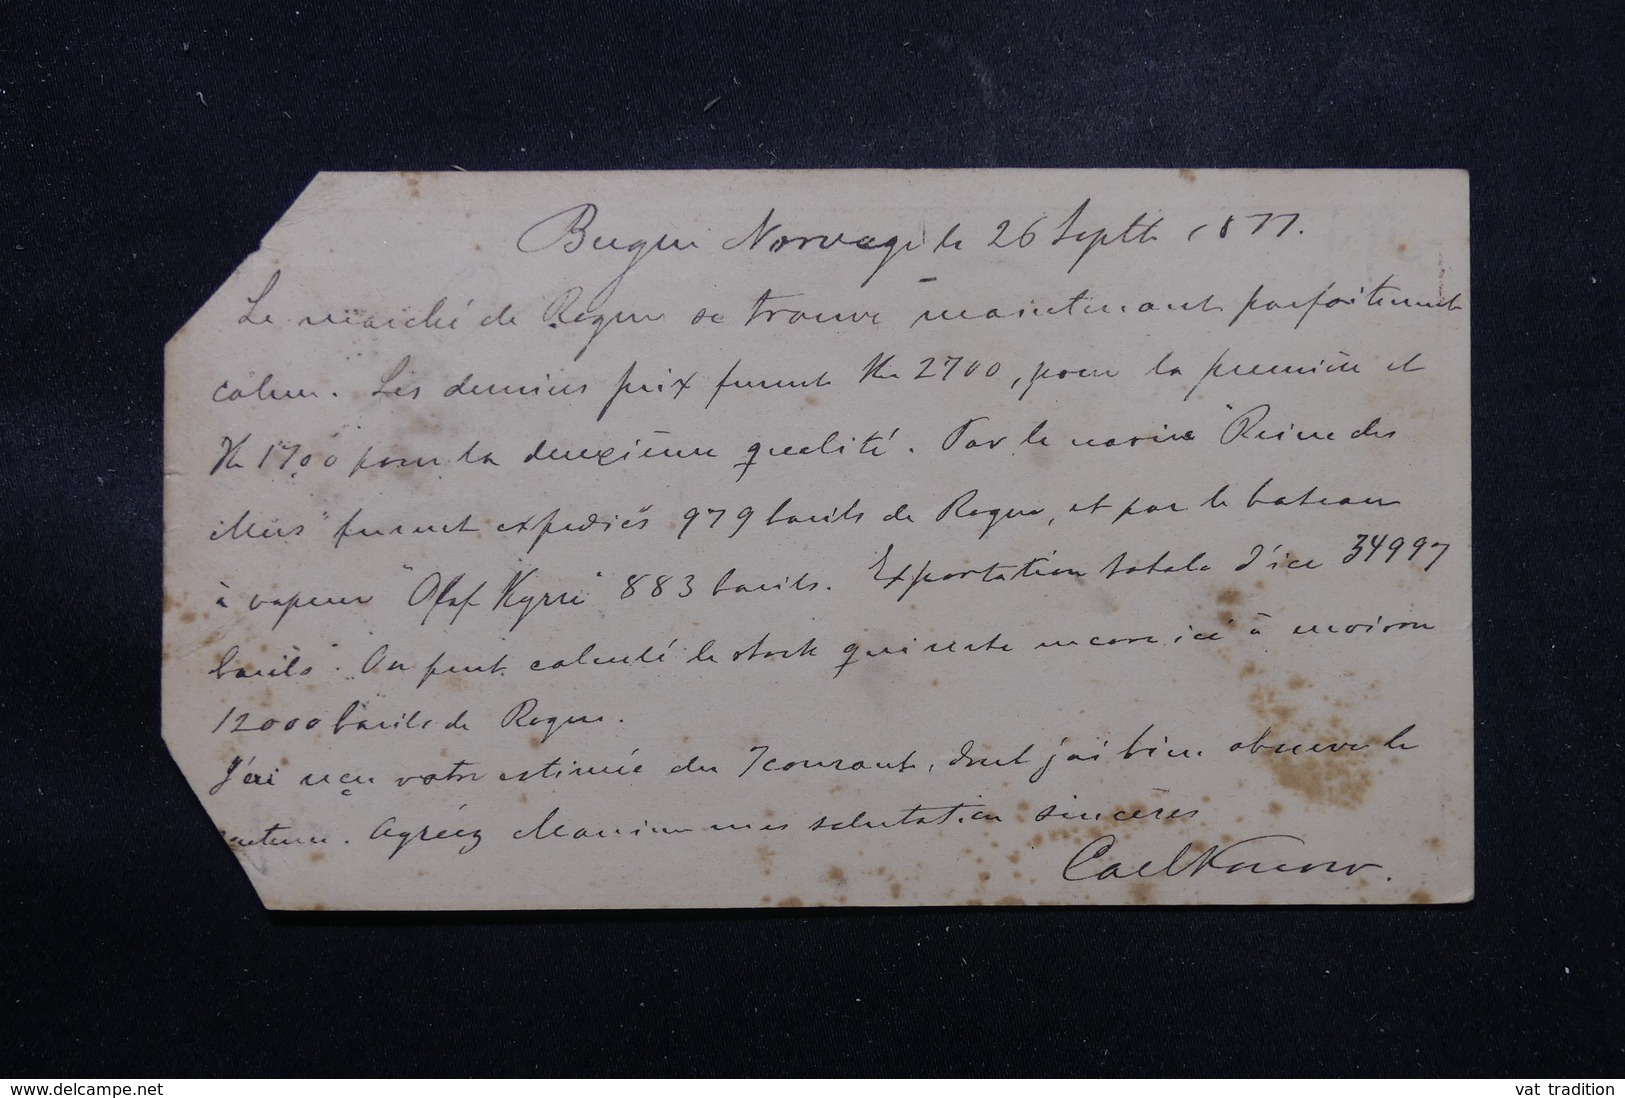 Bergen Norvège le 26 Septb 1877.
Le marché de Rogue se trouve maintenant parfaitement
calme. Les derniers prix furent Kr 2700, pour la première et
Kr 1700 pour la deuxième qualité. Par le navire "Reine des
Mers" furent expediés 979 barils de Rogue, et par le bateau
à vapeur "Olaf Kyrre" 883 barils. Exportation totale d'ici 34997
barils. On peut calculé le stock qui reste encore ici à environ
12000 barils de Rogue.
J'ai reçu votre estimée du 7 courant, dont j'ai bien observé le
contenu. Agréez Monsieur mes salutation sincères
www.delcampe.net
vat tradition